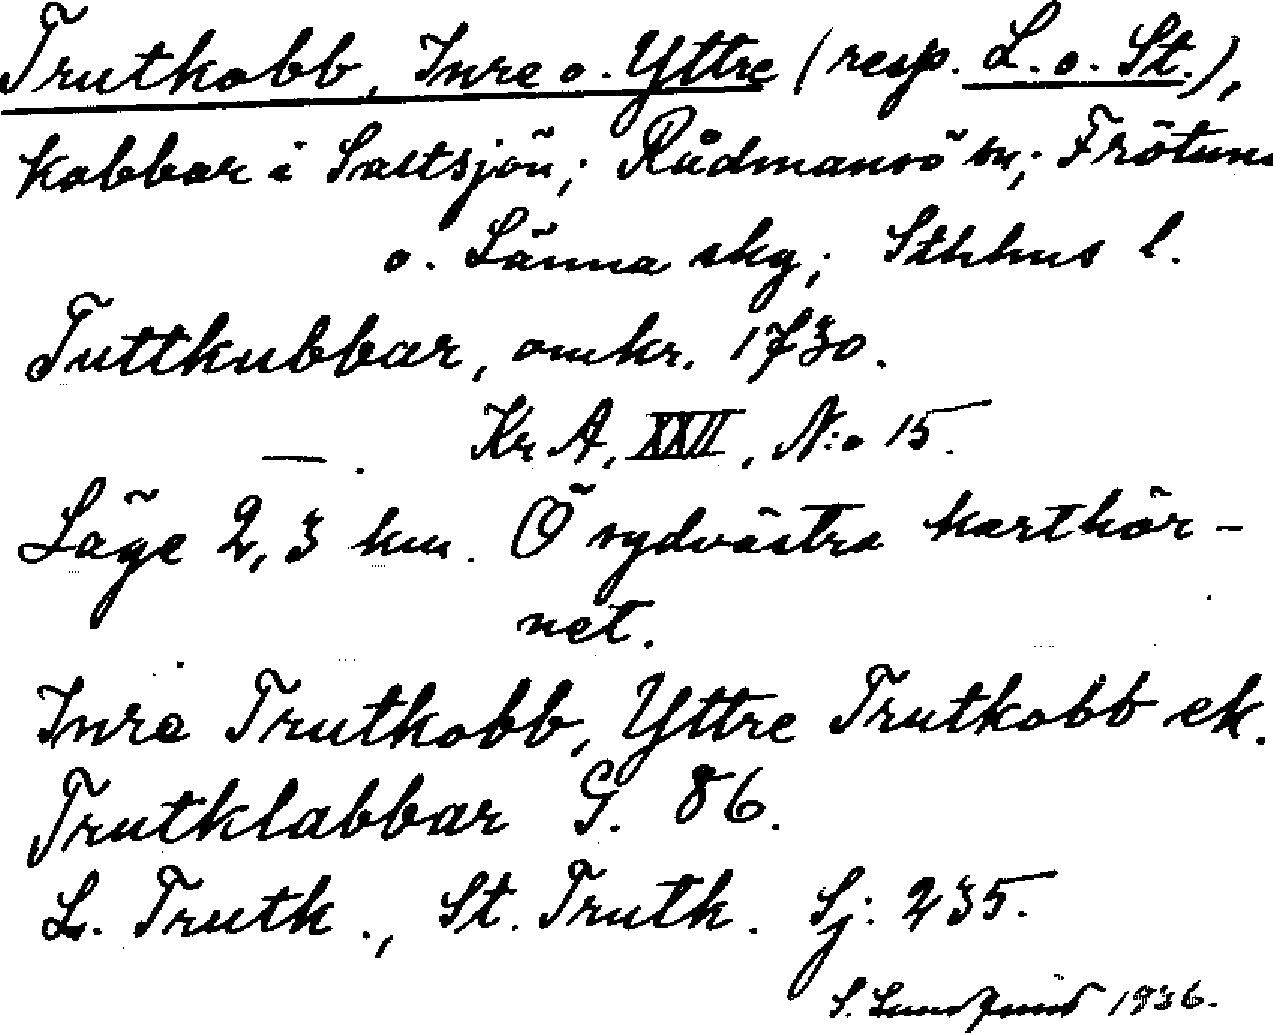 Trutkobb, Inre o. Yttre (resp. L. o. St.),
kobbar i Saltsjön; Rådmansö sn; Frötuna
o. Länna skg; Sthhus l.
Tuttkubbar, omkr. 1730.
— . Kr A, XXII, N:o 15.
Läge 2,3 km. Ö sydvästra karthör-
net.
Inre Trutkobb, Yttre Trutkobb ek.
Trutklabbar G. 86.
L. Trutk., St. Trutk. Sj: 235.
S. 1936.